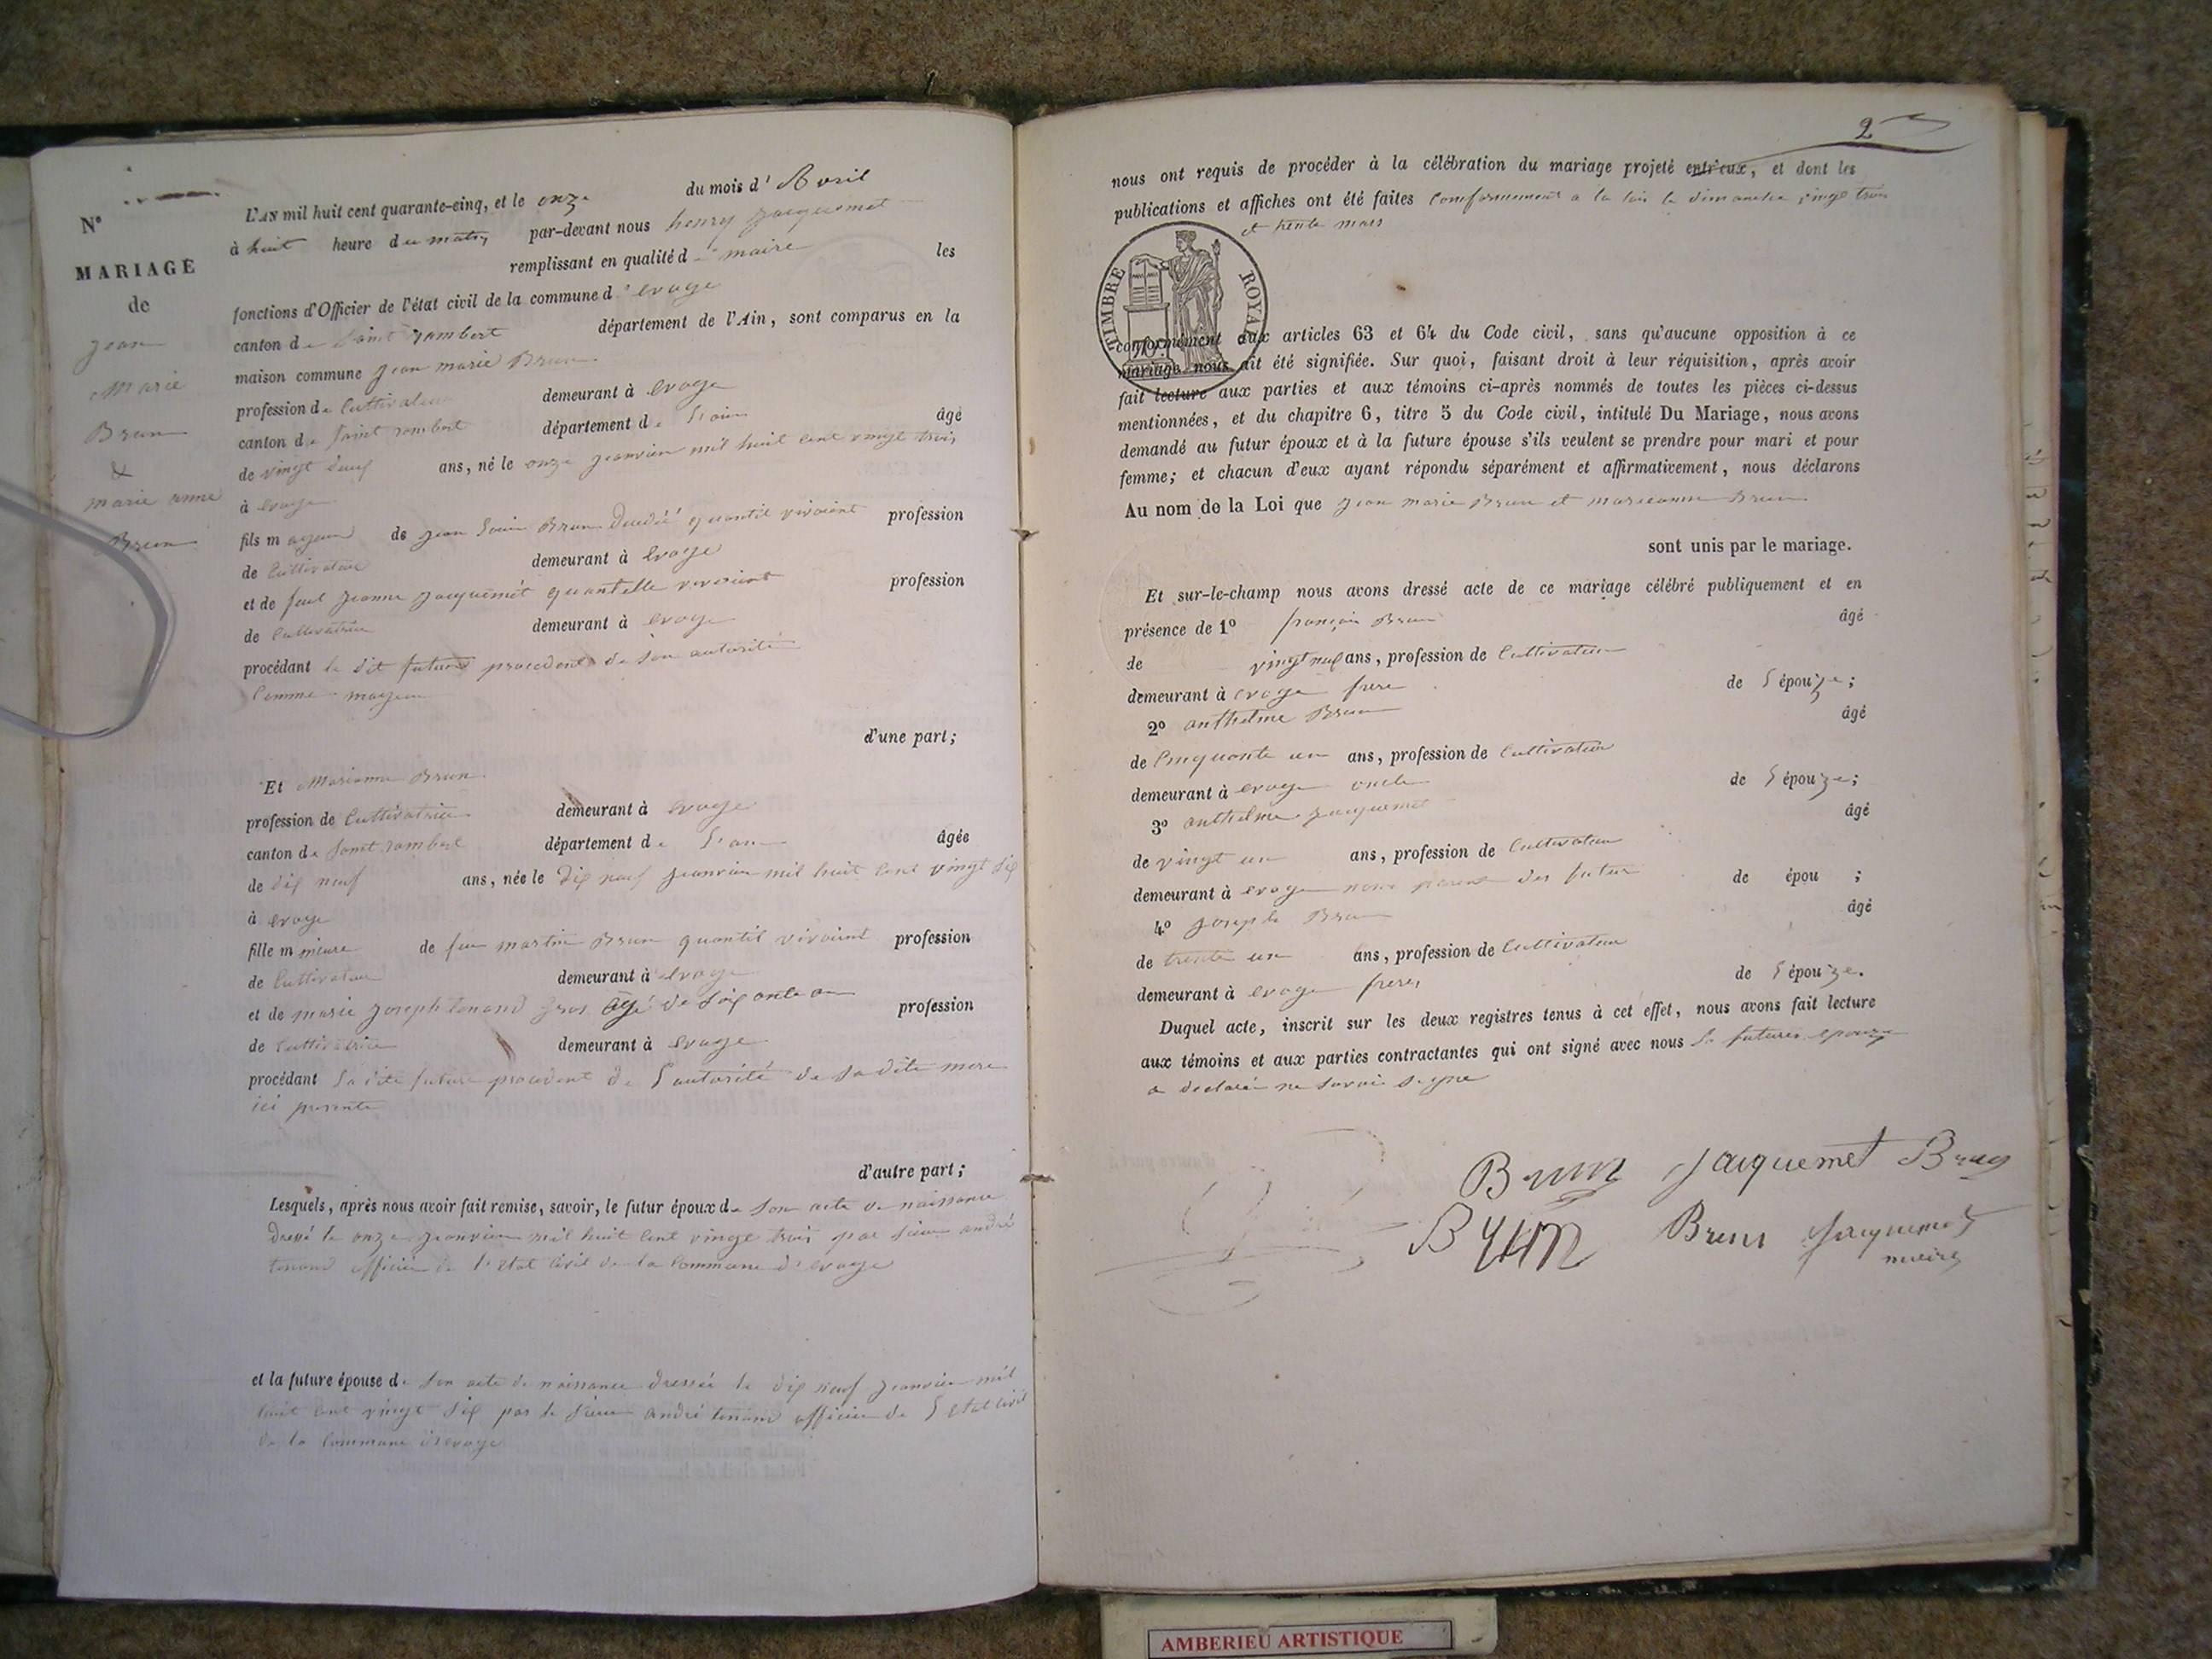 N°
MARIAGE
de
jean
Marie
Brun
&
marie anne
Brun
L'AN mil huit cent quarante-cinq, et le onze du mois d' Avril
à huit heure du matin par-devant nous henry jacquemet
remplissant en qualité de maire les
fonctions d'Officier de l'état civil de la commune d' evoge
canton de Saint rambert département de l'Ain, sont comparus en la
maison commune jean marie Brun
profession de Cultivateur demeurant à evoge
canton de Saint rambert département de l'ain âgé
de vingt deux ans, né le onze jeanvier mil huit cent vingt trois
à evoge
fils majeur de jean Louis Brun quantil vivoient profession
de Cultivateur demeurant à evoge
et de jeanne jacquemet quantelle vivoient profession
de Cultivatrice demeurant à evoge
procédant le dit futur procedent de son autorité
Comme majeur
d'une part;
Et Marianne Brun
profession de Cultivatrice demeurant à evoge
canton de Saint rambert département de l'ain âgée
de dix neuf ans, née le dix neuf jeanvier mil huit cent vingt six
à evoge
fille mineure de feu martin Brun quantil vivoient profession
de Cultivateur demeurant à evoge
et de marie joseph tenand gros âgé de soixante an profession
de Cultivatrice demeurant à evoge
procédant la dite future procedent de l'autorité de sa dite mere
ici presente
d'autre part;
Lesquels, après nous avoir fait remise, savoir, le futur époux de son acte de naissance
le onze jeanvier mil huit cent vingt trois par sieur andré
tenand officier de l'etat Civil de la Commune d'evoge
et la future épouse de son acte de naissance dressée le dix neuf jeanvier mil
huit cent vingt six par le sieur andré tenand officier de l etat civil
de la Commune d'evoge
2
nous ont requis de procéder à la célébration du mariage projeté entr'eux, et dont les
publications et affiches ont été faites a la loi le dimanche vingt trois
et trente mars
TIMBRE ROYAL
conformément aux articles 63 et 64 du Code civil, sans qu'aucune opposition à ce
mariage nous ait été signifiée. Sur quoi, faisant droit à leur réquisition, après avoir
fait lecture aux parties et aux témoins ci-après nommés de toutes les pièces ci-dessus
mentionnées, et du chapitre 6, titre 5 du Code civil, intitulé Du Mariage, nous avons
demandé au futur époux et à la future épouse s'ils veulent se prendre pour mari et pour
femme; et chacun d'eux ayant répondu séparément et affirmativement, nous déclarons
Au nom de la Loi que jean marie Brun et marieanne Brun
sont unis par le mariage.
Et sur-le-champ nous avons dressé acte de ce mariage célébré publiquement et en
présence de 1° françois Brun âgé
de vingt neuf ans, profession de Cultivateur
demeurant à evoge frere de l épouze;
2° anthelme Brun âgé
de Cinquante un ans, profession de Cultivateur
demeurant à evoge oncle de l épouze;
3° anthelme jacquemet âgé
de vingt un ans, profession de Cultivateur
demeurant à evoge non parent des futur de épou ;
4° joseph Brun âgé
de trente un ans, profession de Cultivateur
demeurant à evoge freres de l épouze.
Duquel acte, inscrit sur les deux registres tenus à cet effet, nous avons fait lecture
aux témoins et aux parties contractantes qui ont signé avec nous la future epouze
a declaré ne savoir signe
Brun Jacquemet Brun
Brun Brun Jacquemet
maire
AMBERIEU ARTISTIQUE